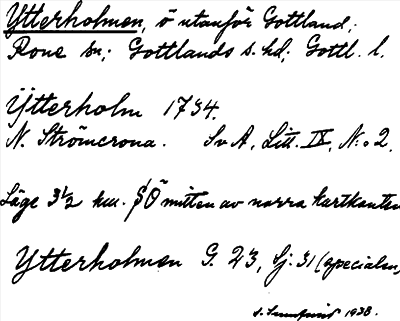 Ytterholmen, ö utanför Gottland;
Rone sn; Gottlands s. hd; Gottl. l.
Ytterholm 1734.
N. Strömcrona. SvA, Litt. IX, N:o 2.
Läge 3½ km. SÖ mitten av norra kartkanten
Ytterholmen G. 23, Sj. 31 (specialen)
1938.